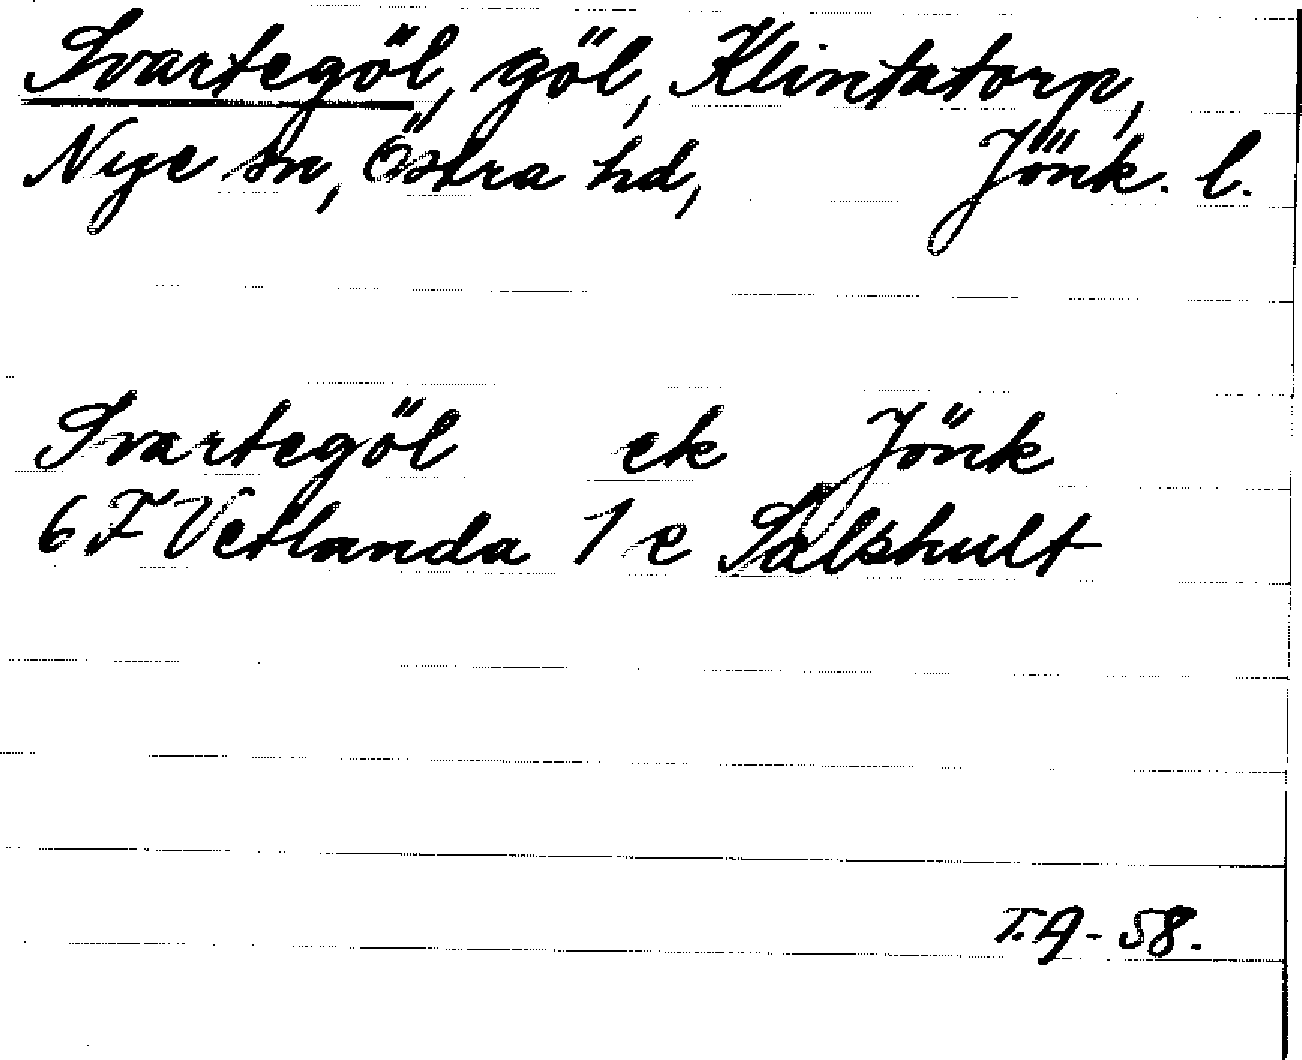 Svartegöl, göl, Klintatorp,
Nye sn, Östra hd, Jönk. l.
Svartegöl ek Jönk
6 F Vetlanda 1 e Sälshult
T.A-58.